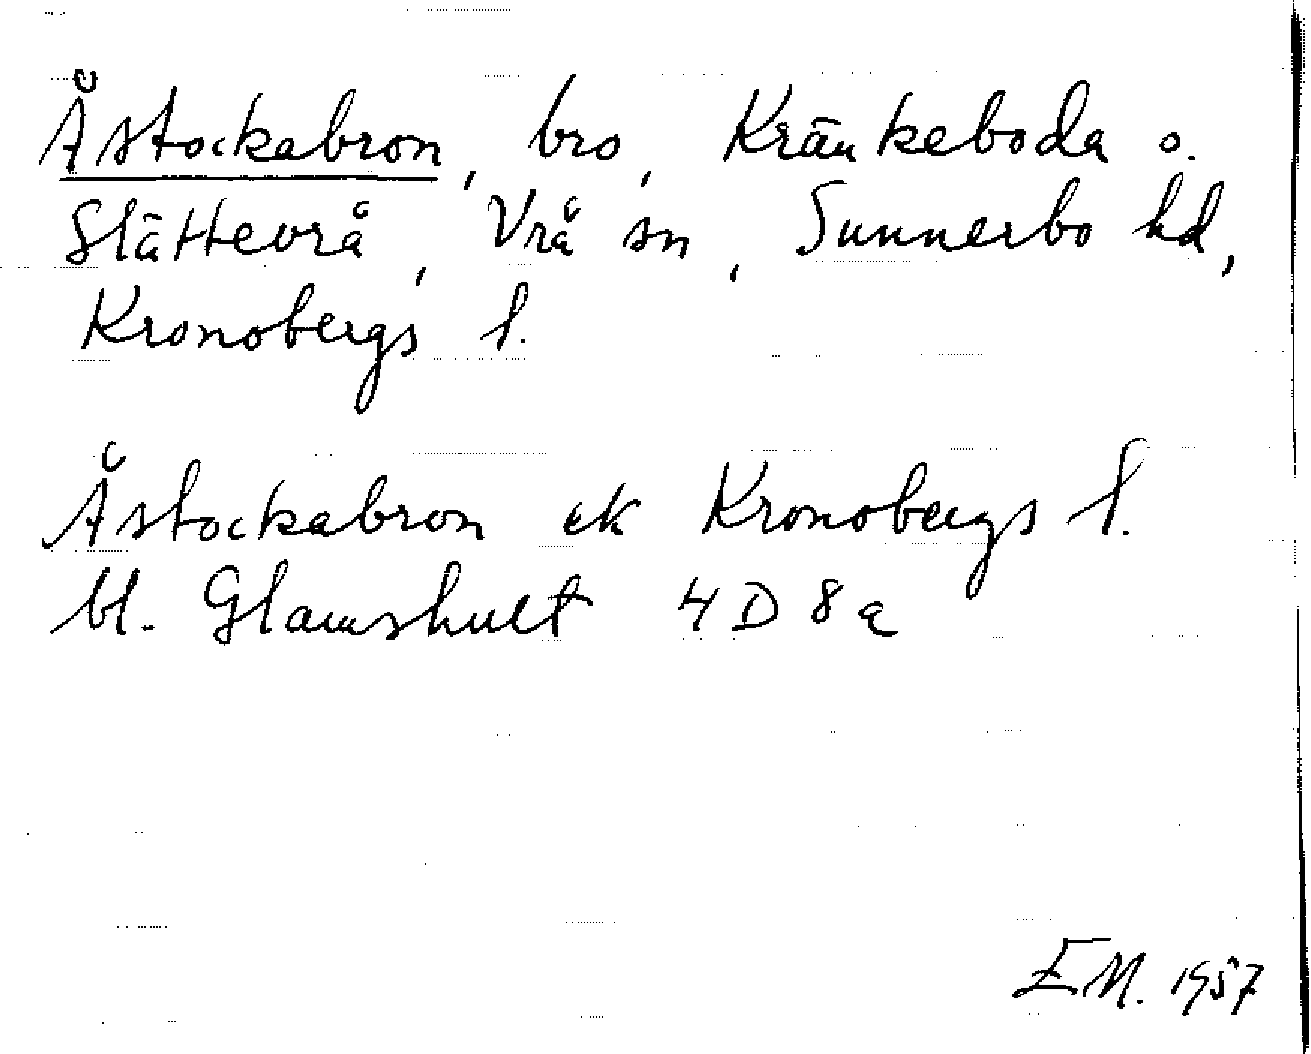 Åstockabron, bro, Kränkeboda o.
Slättevrå, Vrå sn, Sunnerbo hd,
Kronobergs l.
Åstockabron ek Kronobergs l.
bl. Glamshult 4D8a
EM. 1957